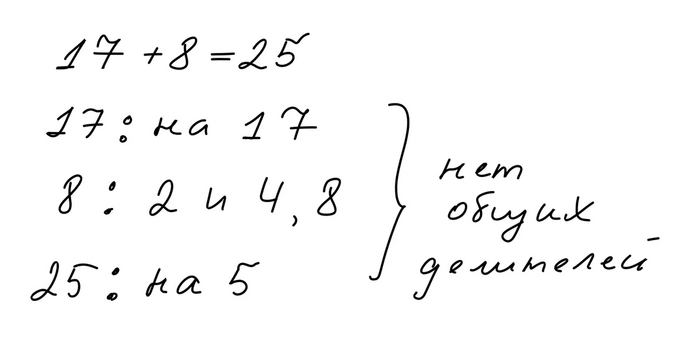 17 + 8 = 25
17 : на 17
8 : 2 и 4, 8
25 : на 5
нет
общих
делителей